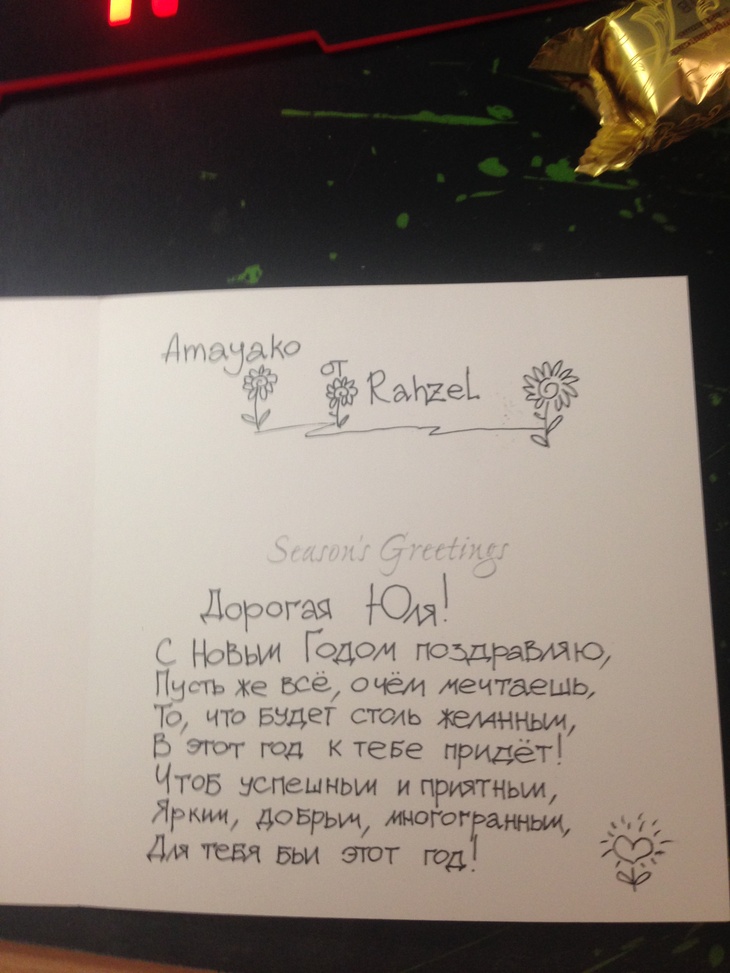 Amayako
от
Rahzel
Season's Greetings
Дорогая Юля!
С Новым Годом поздравляю,
Пусть же всё, о чём мечтаешь,
То, что будет столь желанным,
В этот год к тебе придёт!
Чтоб успешным и приятным,
Ярким, добрым, многогранным,
Для тебя был этот год!